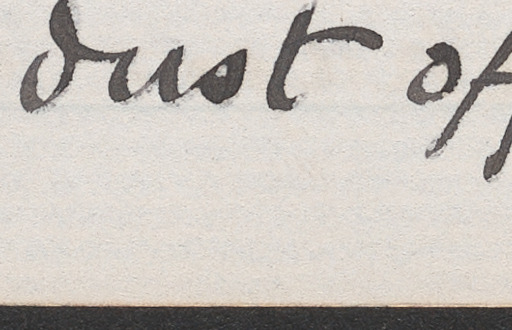 dust of